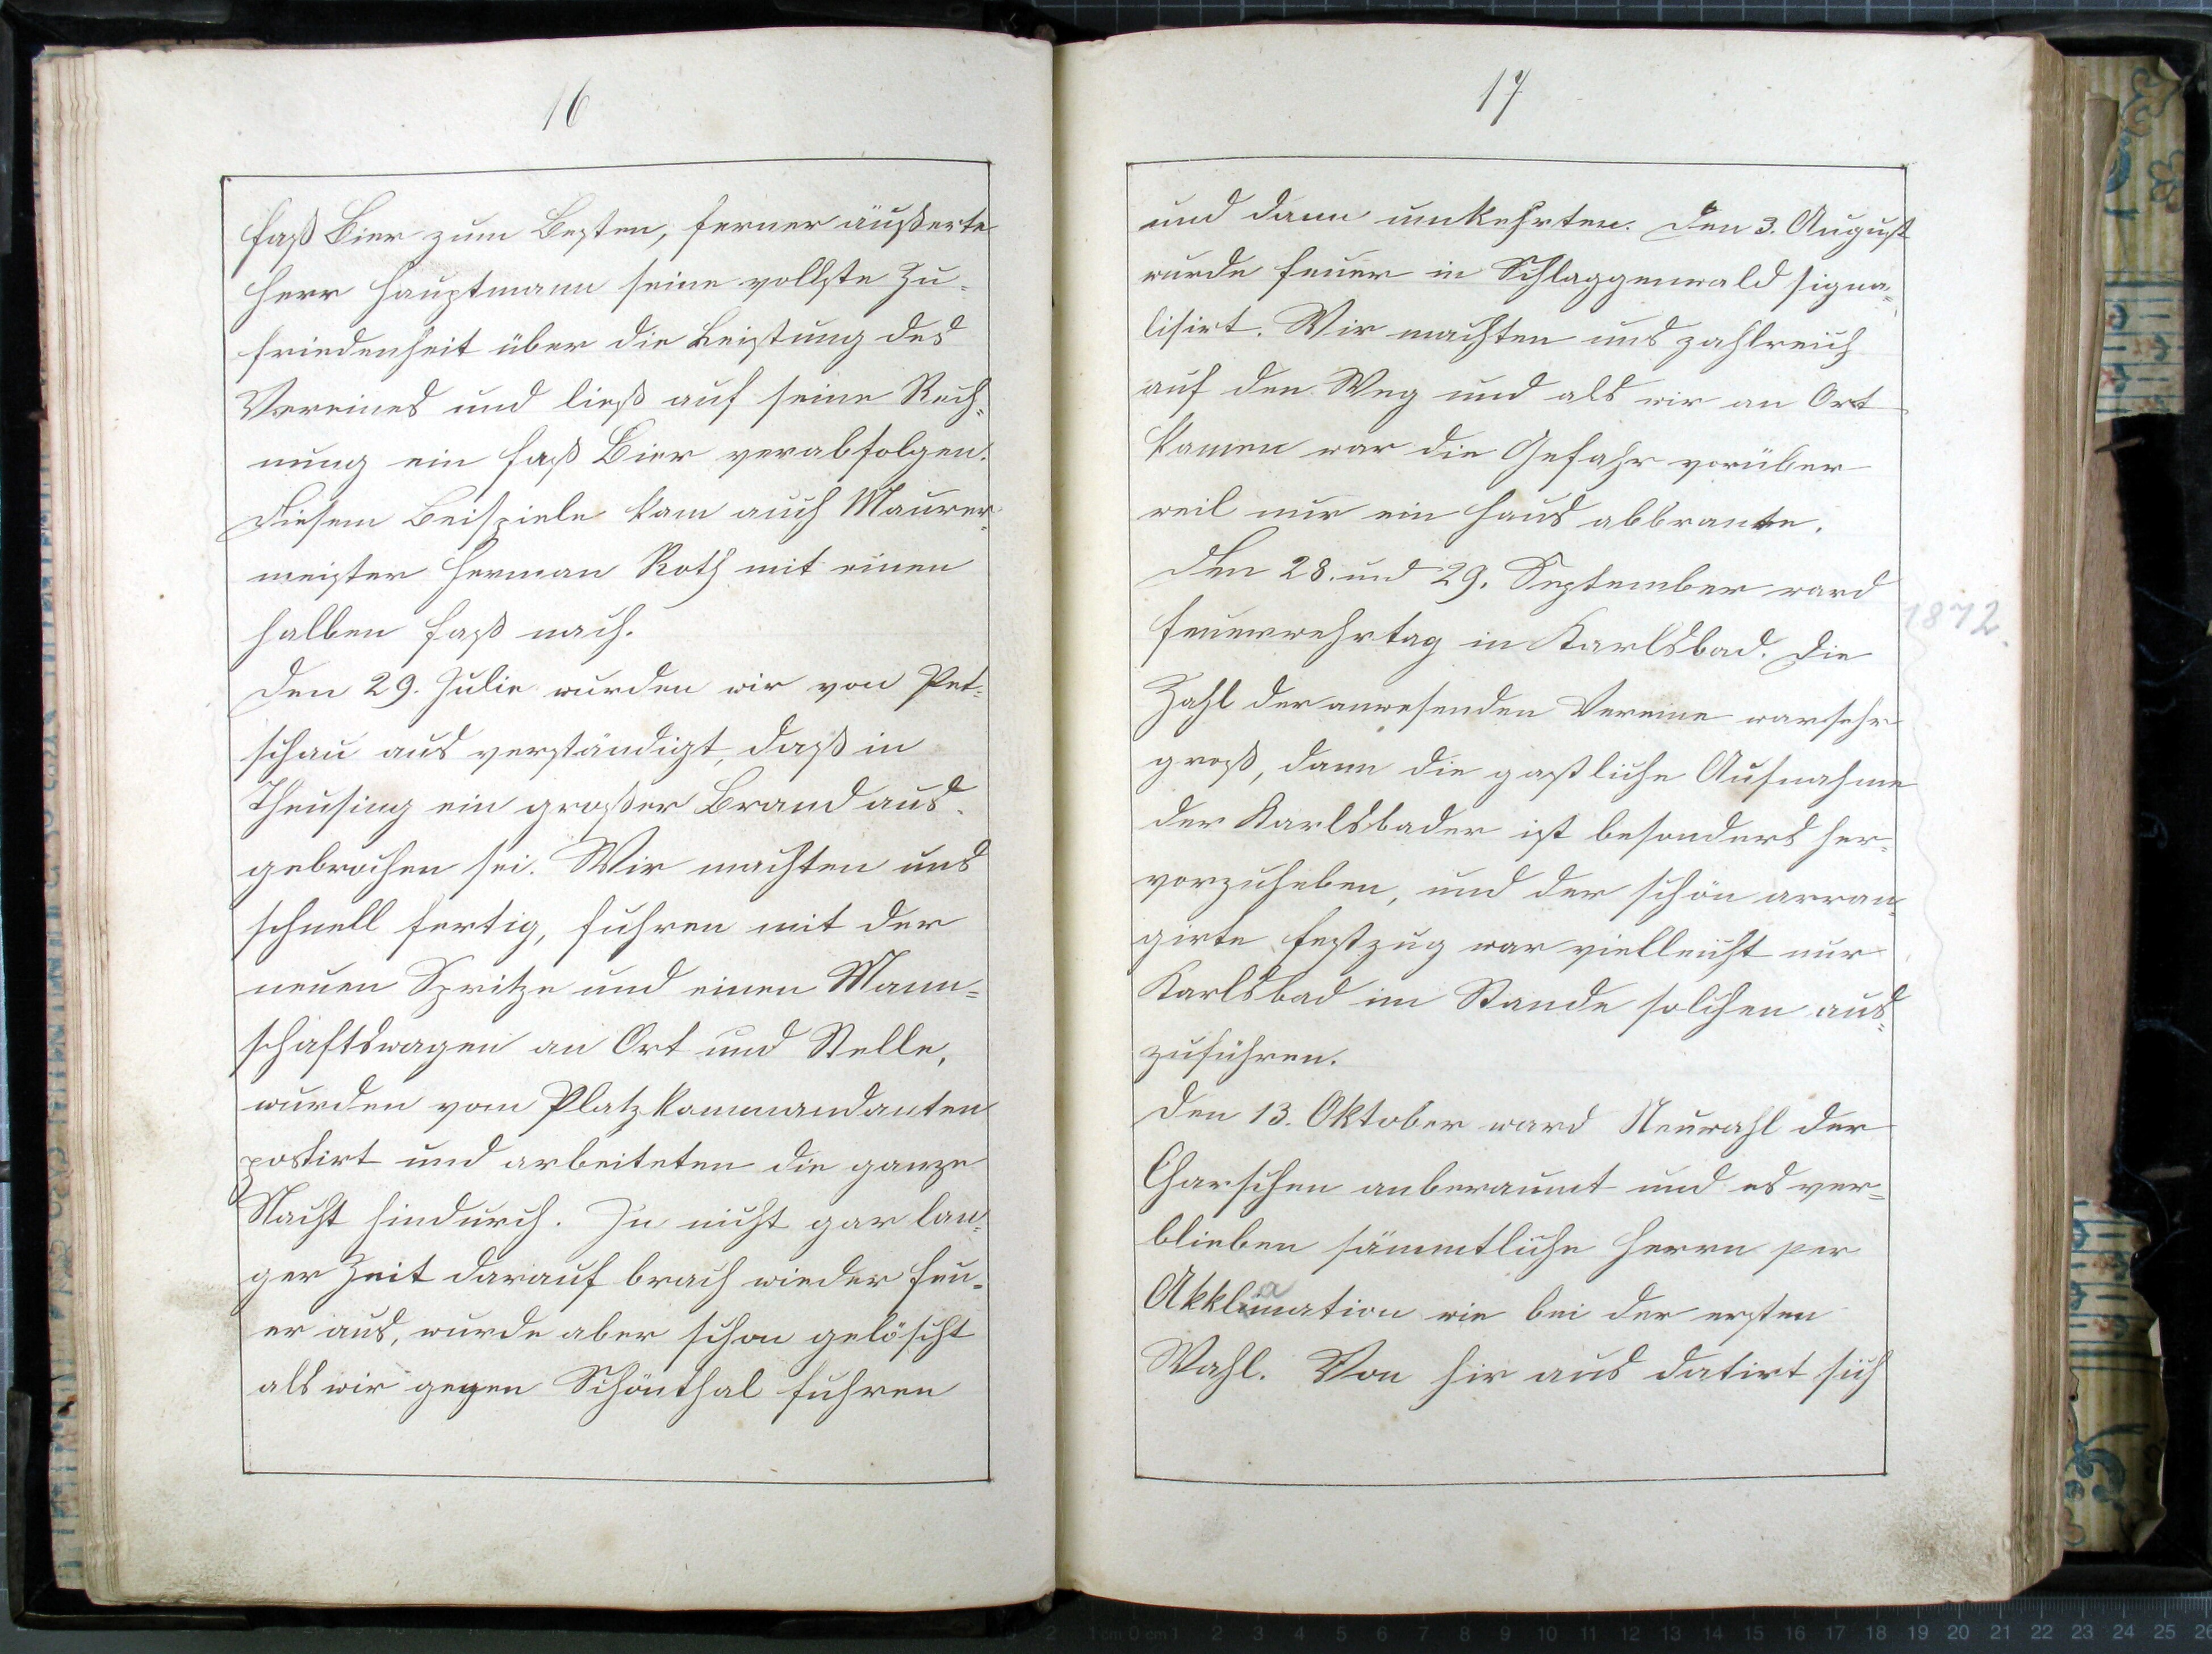 16
Faß Bier zum Besten, ferner äußerte
Herr Hauptmann seine vollste Zu-
friedenheit über die Leistung des
Vereines und ließ auf seine Rech-
nung ein Faß Bier verabfolgen.
Diesem Beispiele kam auch Maurer-
meister Herman Roth mit einen
halben Faß nach.
Den 29. Julie wurden wir von Pet-
schau aus verständigt, daß in
Theusing ein großer Brand aus-
gebrochen sei. Wir machten uns
schnell fertig, fuhren mit der
neuen Spritze und einen Mann-
schaftswagen an Ort und Stelle,
wurden vom Platzkommandanten
postirt und arbeiteten die ganze
Nacht hindurch. In nicht gar lan-
ger Zeit darauf brach wieder Feu-
er aus, wurde aber schon gelöscht
als wir gegen Schönthal fuhren
17
und dann umkehrten. Den 3. August
wurde Feuer in Schlaggenwald signa-
lisirt. Wir machten uns zahlreich
auf den Weg und als wir an Ort
kamen war die Gefahr vorüber
weil nur ein Haus abbrante.
Den 28. und 29. September ward
Feuerwehrtag in Karlsbad. Die
1872.
Zahl der anwesenden Vereine war sehr
groß, dann die gastliche Aufnahme
der Karlsbader ist besonders her-
vorzuheben, und der schön arran-
girte Festzug war vielleicht nur
Karlsbad im Stande solchen aus-
zuführen.
Den 13. Oktober ward Neuwahl der
Charschen anberaumt und es ver-
blieben sämmtliche Herrn per
Akklamation wie bei der ersten
Wahl. Von hir aus datirt sich